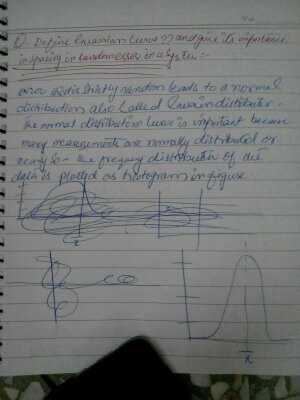 Q. Define Gaussian curve and give its importance
in spacing in randomness in a system:-
error that is strictly random leads to a normal
distribution also called Gaussian distributer.
The normal distribution curve is important because
many measurements are normally distributed or
nearly so - the frequency distribution of the
data is plotted as histogram in figure.
x̄
x̄